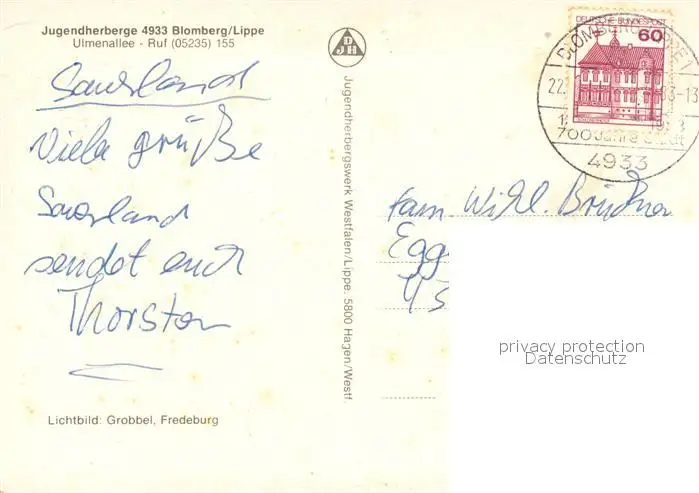 Jugendherberge 4933 Blomberg/Lippe
Ulmenallee - Ruf (05235) 155
Sauerland
Viele grüße
Sauerland
sendet euch
Thorsten
Lichtbild: Grobbel, Fredeburg
DJH
Jugendherbergswerk Westfalen/Lippe. 5800 Hagen/Westf.
DEUTSCHE BUNDESPOST
60
BLOMBERG, LIPPE 1
22.
83-13
700 Jahre Stadt
4933
Fam. Wilh. Brückner
Egg
privacy protection
Datenschutz